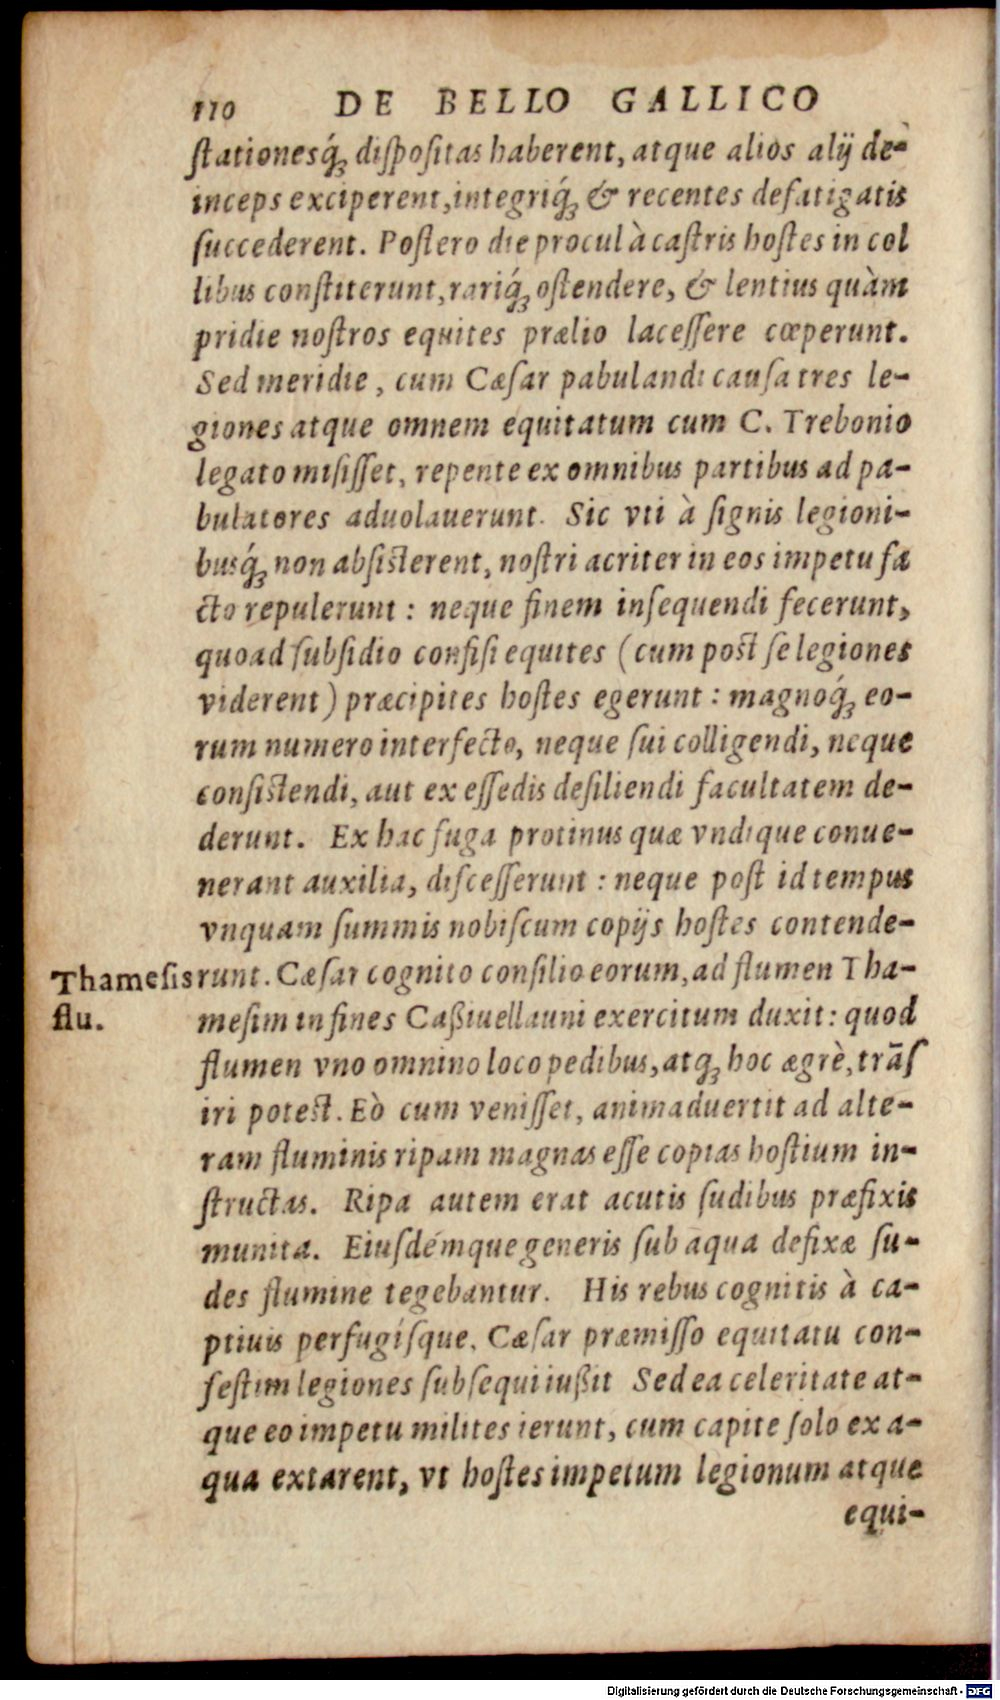 110 DE BELLO GALLICO
ſtationesq́; diſpoſitas haberent, atque alios alij de-
inceps exciperent, integriq́; & recentes defatigatis
ſuccederent. Poſtero die procul à caſtris hoſtes in col
libus conſtiterunt, rariq́; oſtendere, & lentius quàm
pridie noſtros equites prælio laceſſere cœperunt.
Sed meridie, cum Cæſar pabulandi cauſa tres le-
giones atque omnem equitatum cum C. Trebonio
legato miſiſſet, repente ex omnibus partibus ad pa-
bulatores aduolauerunt. Sic vti à ſignis legioni-
busq́; non abſiſterent, noſtri acriter in eos impetu fa
cto repulerunt: neque finem inſequendi fecerunt,
quoad ſubſidio confiſi equites (cum poſt ſe legiones
viderent) præcipites hoſtes egerunt: magnoq́; eo-
rum numero interfecto, neque ſui colligendi, neque
conſiſtendi, aut ex eſſedis deſiliendi facultatem de-
derunt. Ex hac fuga protinus quæ vndique conue-
nerant auxilia, diſceſſerunt: neque poſt id tempus
vnquam ſummis nobiſcum copijs hoſtes contende-
Thameſis runt. Cæſar cognito conſilio eorum, ad flumen Tha-
flu. meſim in fines Caßiuellauni exercitum duxit: quod
flumen vno omnino loco pedibus, atq; hoc ægrè, trāſ
iri poteſt. Eò cum veniſſet, animaduertit ad alte-
ram fluminis ripam magnas eſſe copias hoſtium in-
ſtructas. Ripa autem erat acutis ſudibus præfixis
munita. Eiuſdémque generis ſub aqua defixæ ſu-
des flumine tegebantur. His rebus cognitis à ca-
ptiuis perfugíſque, Cæſar præmiſſo equitatu con-
feſtim legiones ſubſequi iußit Sed ea celeritate at-
que eo impetu milites ierunt, cum capite ſolo ex a-
qua extarent, vt hoſtes impetum legionum atque
equi-
Digitalisierung gefördert durch die Deutsche Forschungsgemeinschaft - DFG